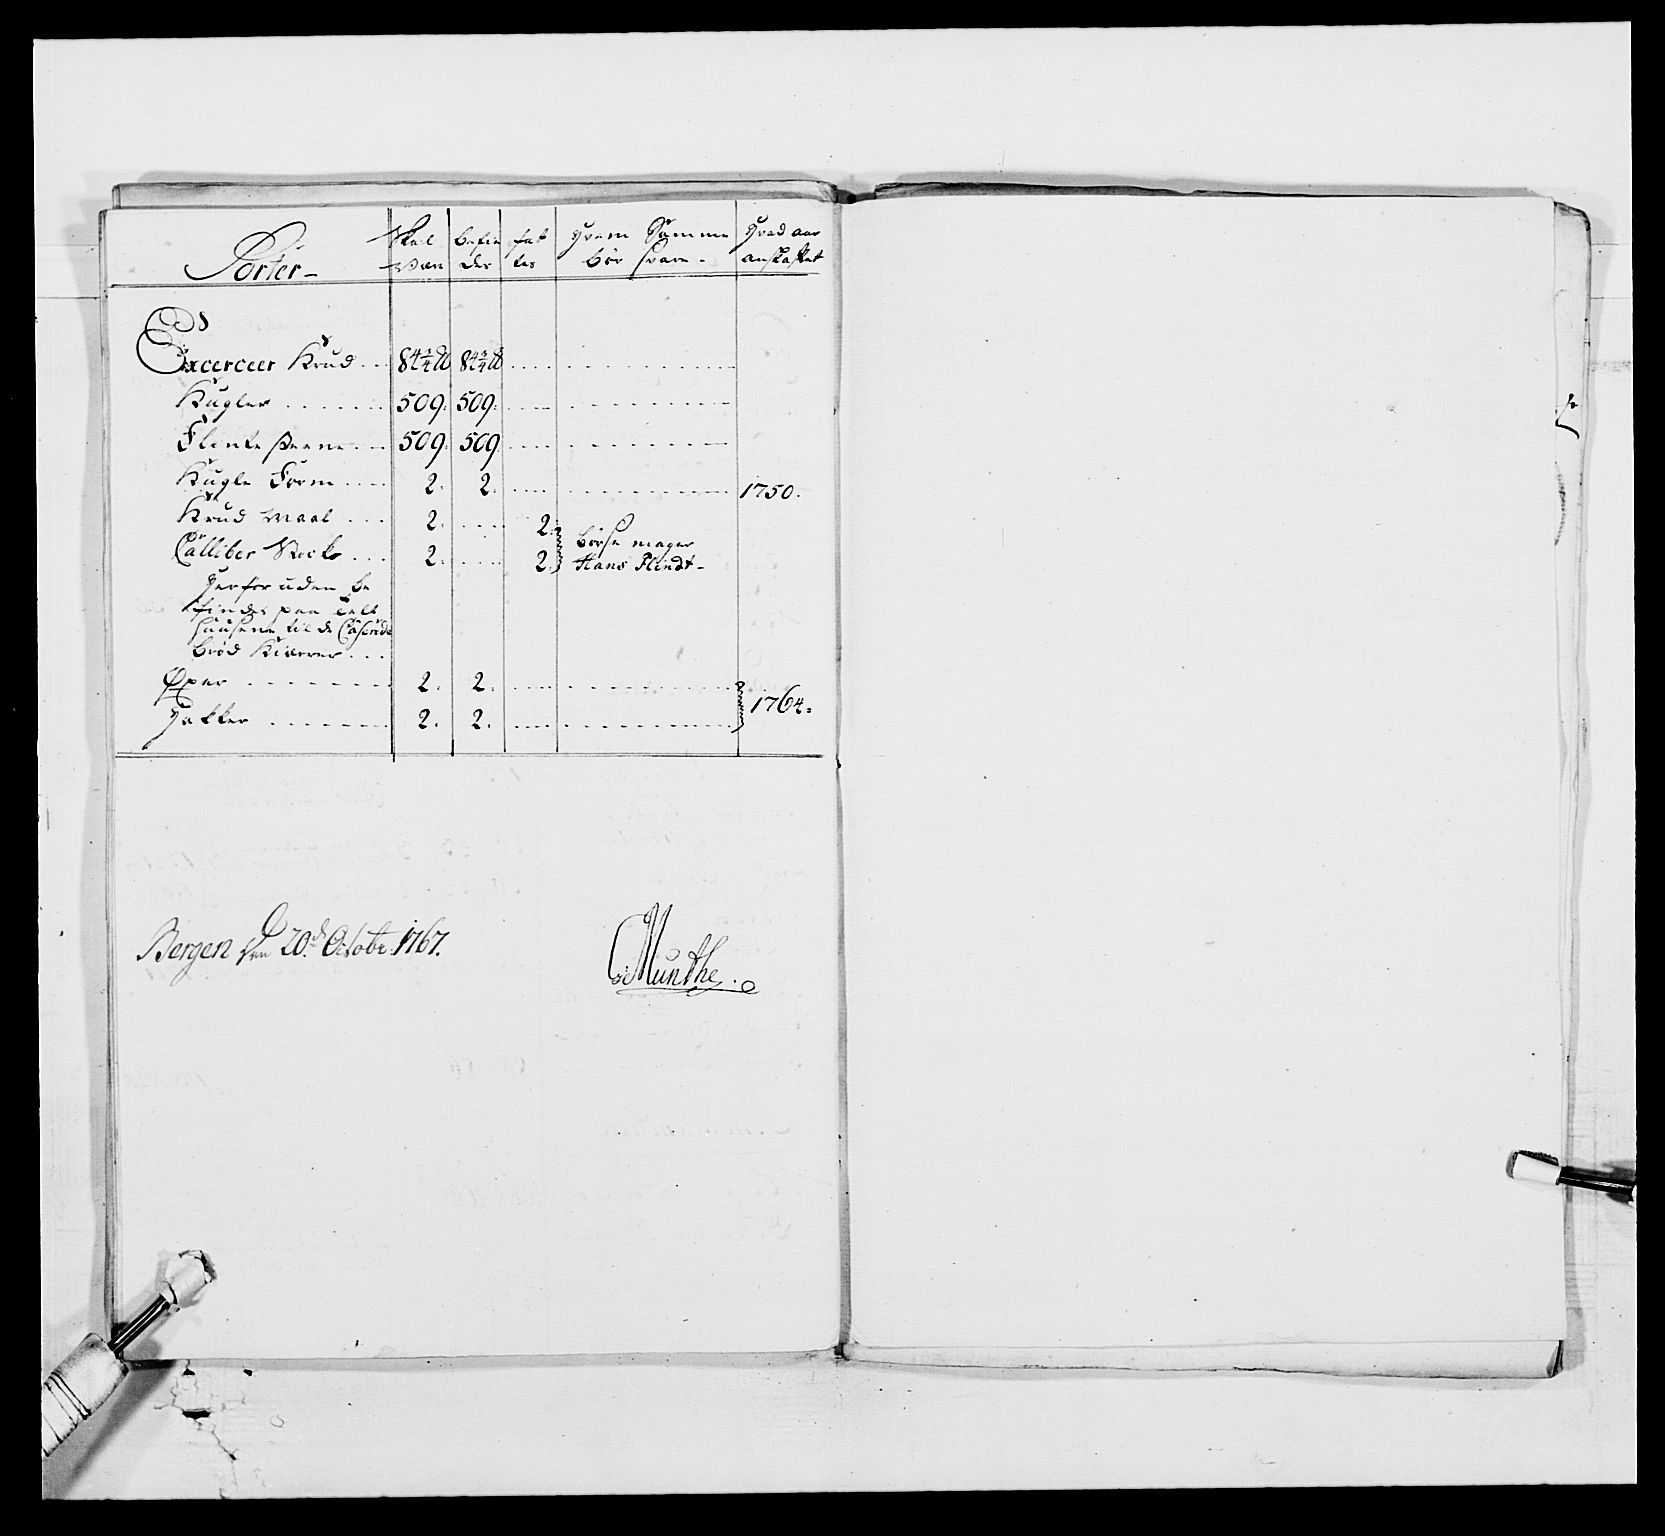 Sorter- Skal være befindes fattes Hvem Samme bør svare. Hvad aar anskaffet
Excerceer Krud 84¾ 84¾
Kugler 509. 509.
Flinte steene 509. 509
Kugle Form 2. 2. 1750.
Krud Maal 2. 2.
börse mager
Calliber Stock 2. 2. Hans Flindt-
Herforuden be
findes paa Telt
huusene til de
brød Kierrer
Øxer 2. 2.
1764.
Hakker 2. 2.
Bergen den 20.d Octobr. 1767.
Munthe.